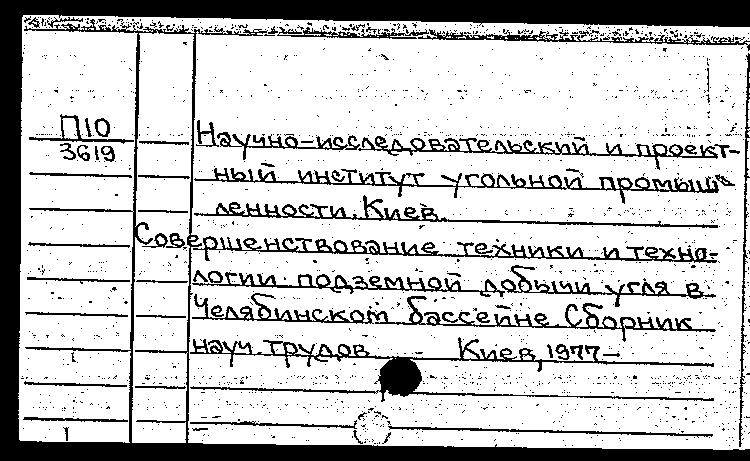 П10
3619
Научно-исследовательский и проект-
ный институт угольной промыш-
ленности. Киев.
Совершенствование техники и техно-
логии подземной добычи угля в
Челябинском бассейне. Сборник
науч. трудов. - Киев, 1977-